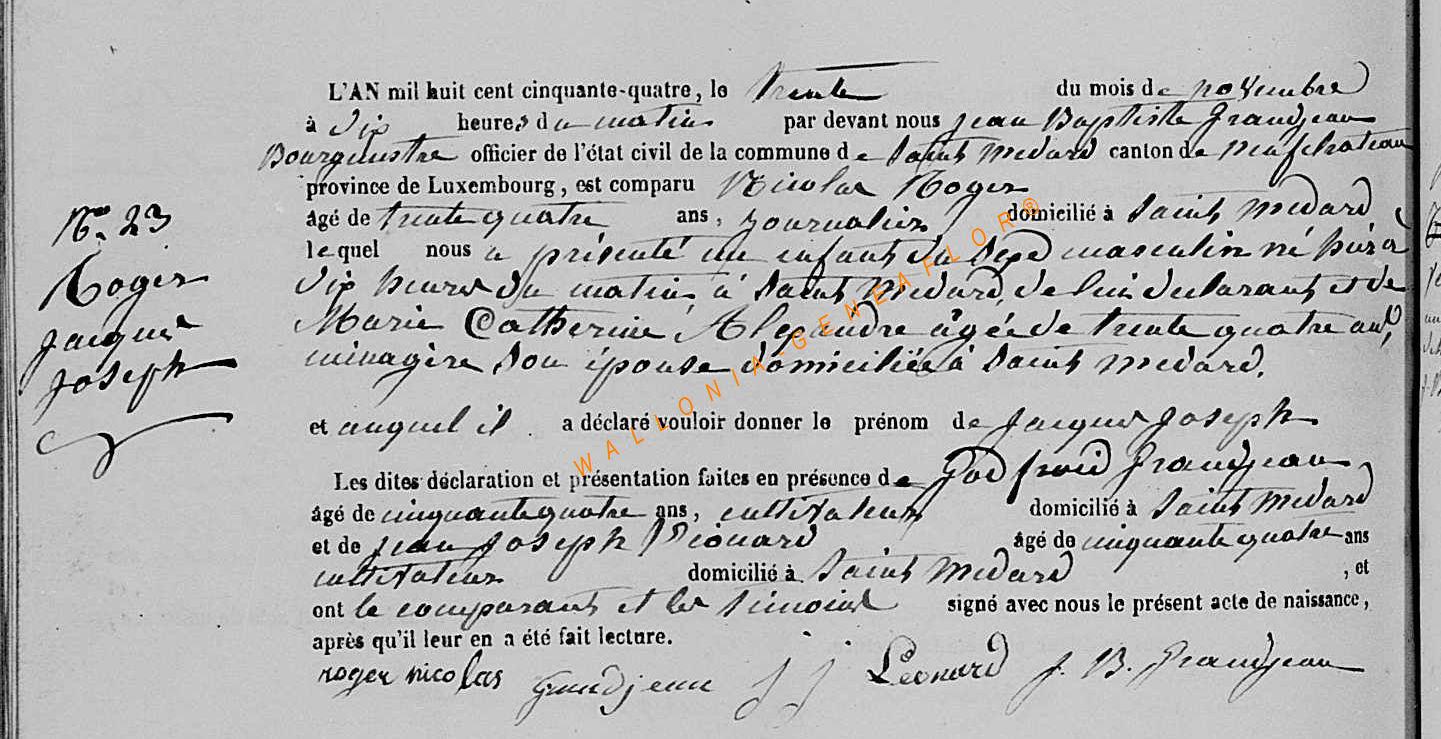 L'AN mil huit cent cinquante-quatre, le trente du mois de novembre
à dix heures du matin par devant nous Jean Baptiste Grandjean
Bourgmestre officier de l'état civil de la commune de Saint Médard canton de Neufchateau
province de Luxembourg, est comparu Nicolas Roger
âgé de trente quatre ans, journalier domicilié à Saint Médard,
lequel nous a présenté un enfant du sexe masculin né hier à
dix heures du matin à Saint Médard, de lui déclarant et de
Marie Catherine Alexandre âgée de trente quatre ans,
ménagère son épouse domiciliée à Saint Médard.
et auquel il a déclaré vouloir donner le prénom de Jacques Joseph
Les dites déclaration et présentation faites en présence de Godfroid Grandjean,
âgé de cinquante quatre ans, cultivateur domicilié à Saint Médard
et de Jean Joseph Léonard âgé de cinquante quatre ans
cultivateur domicilié à Saint Médard, et
ont le comparant et les témoins signé avec nous le présent acte de naissance,
après qu'il leur en a été fait lecture.
roger nicolas Grandjean J J Léonard J. B. Grandjean
No. 23
Roger
Jacques
Joseph
WALLONIA-GENEAFLOR®